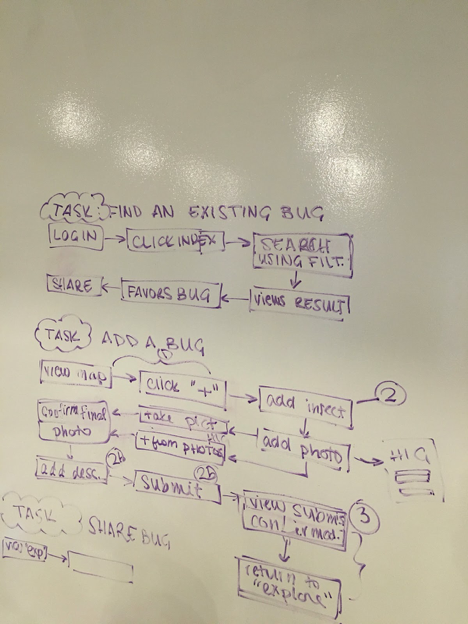 TASK: FIND AN EXISTING BUG
LOGIN
CLICK INDEX
SEARCH
USING FILT.
SHARE
FAVORS BUG
views RESULT
TASK ADD A BUG
view map
click "+"
add insect
2
confirm final
photo
take pict
+ from photos
add photo
HIG
add desc.
2B
submit
view submis
3
return to
"explore"
TASK SHARE BUG